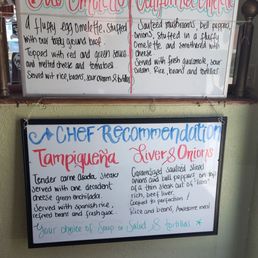 Omelette
A fluffy egg omelette, stuffed
with our tasty ground beef.
Topped with red and green sauce
and melted cheese and tomatoes
Served with rice, beans, sour cream & tortillas
California Omelette
Sauteed mushrooms, bell peppers,
onions, stuffed in a fluffy
omelette and smothered with
cheese
Served with fresh guacamole, sour
cream, rice, beans and tortillas
Chef Recommendation
Tampiqueña
Tender carne asada steak
served with one decadent
cheesy green enchilada.
Served with spanish rice,
refried beans and fresh guac
Liver & Onions
Caramelized sauteed sliced
onions and bell peppers on top
of a thin steak cut of "
rich, beef liver.
Cooked to perfection!
Rice and beans, Awesome meal!
Your choice of Soup or Salad & tortillas